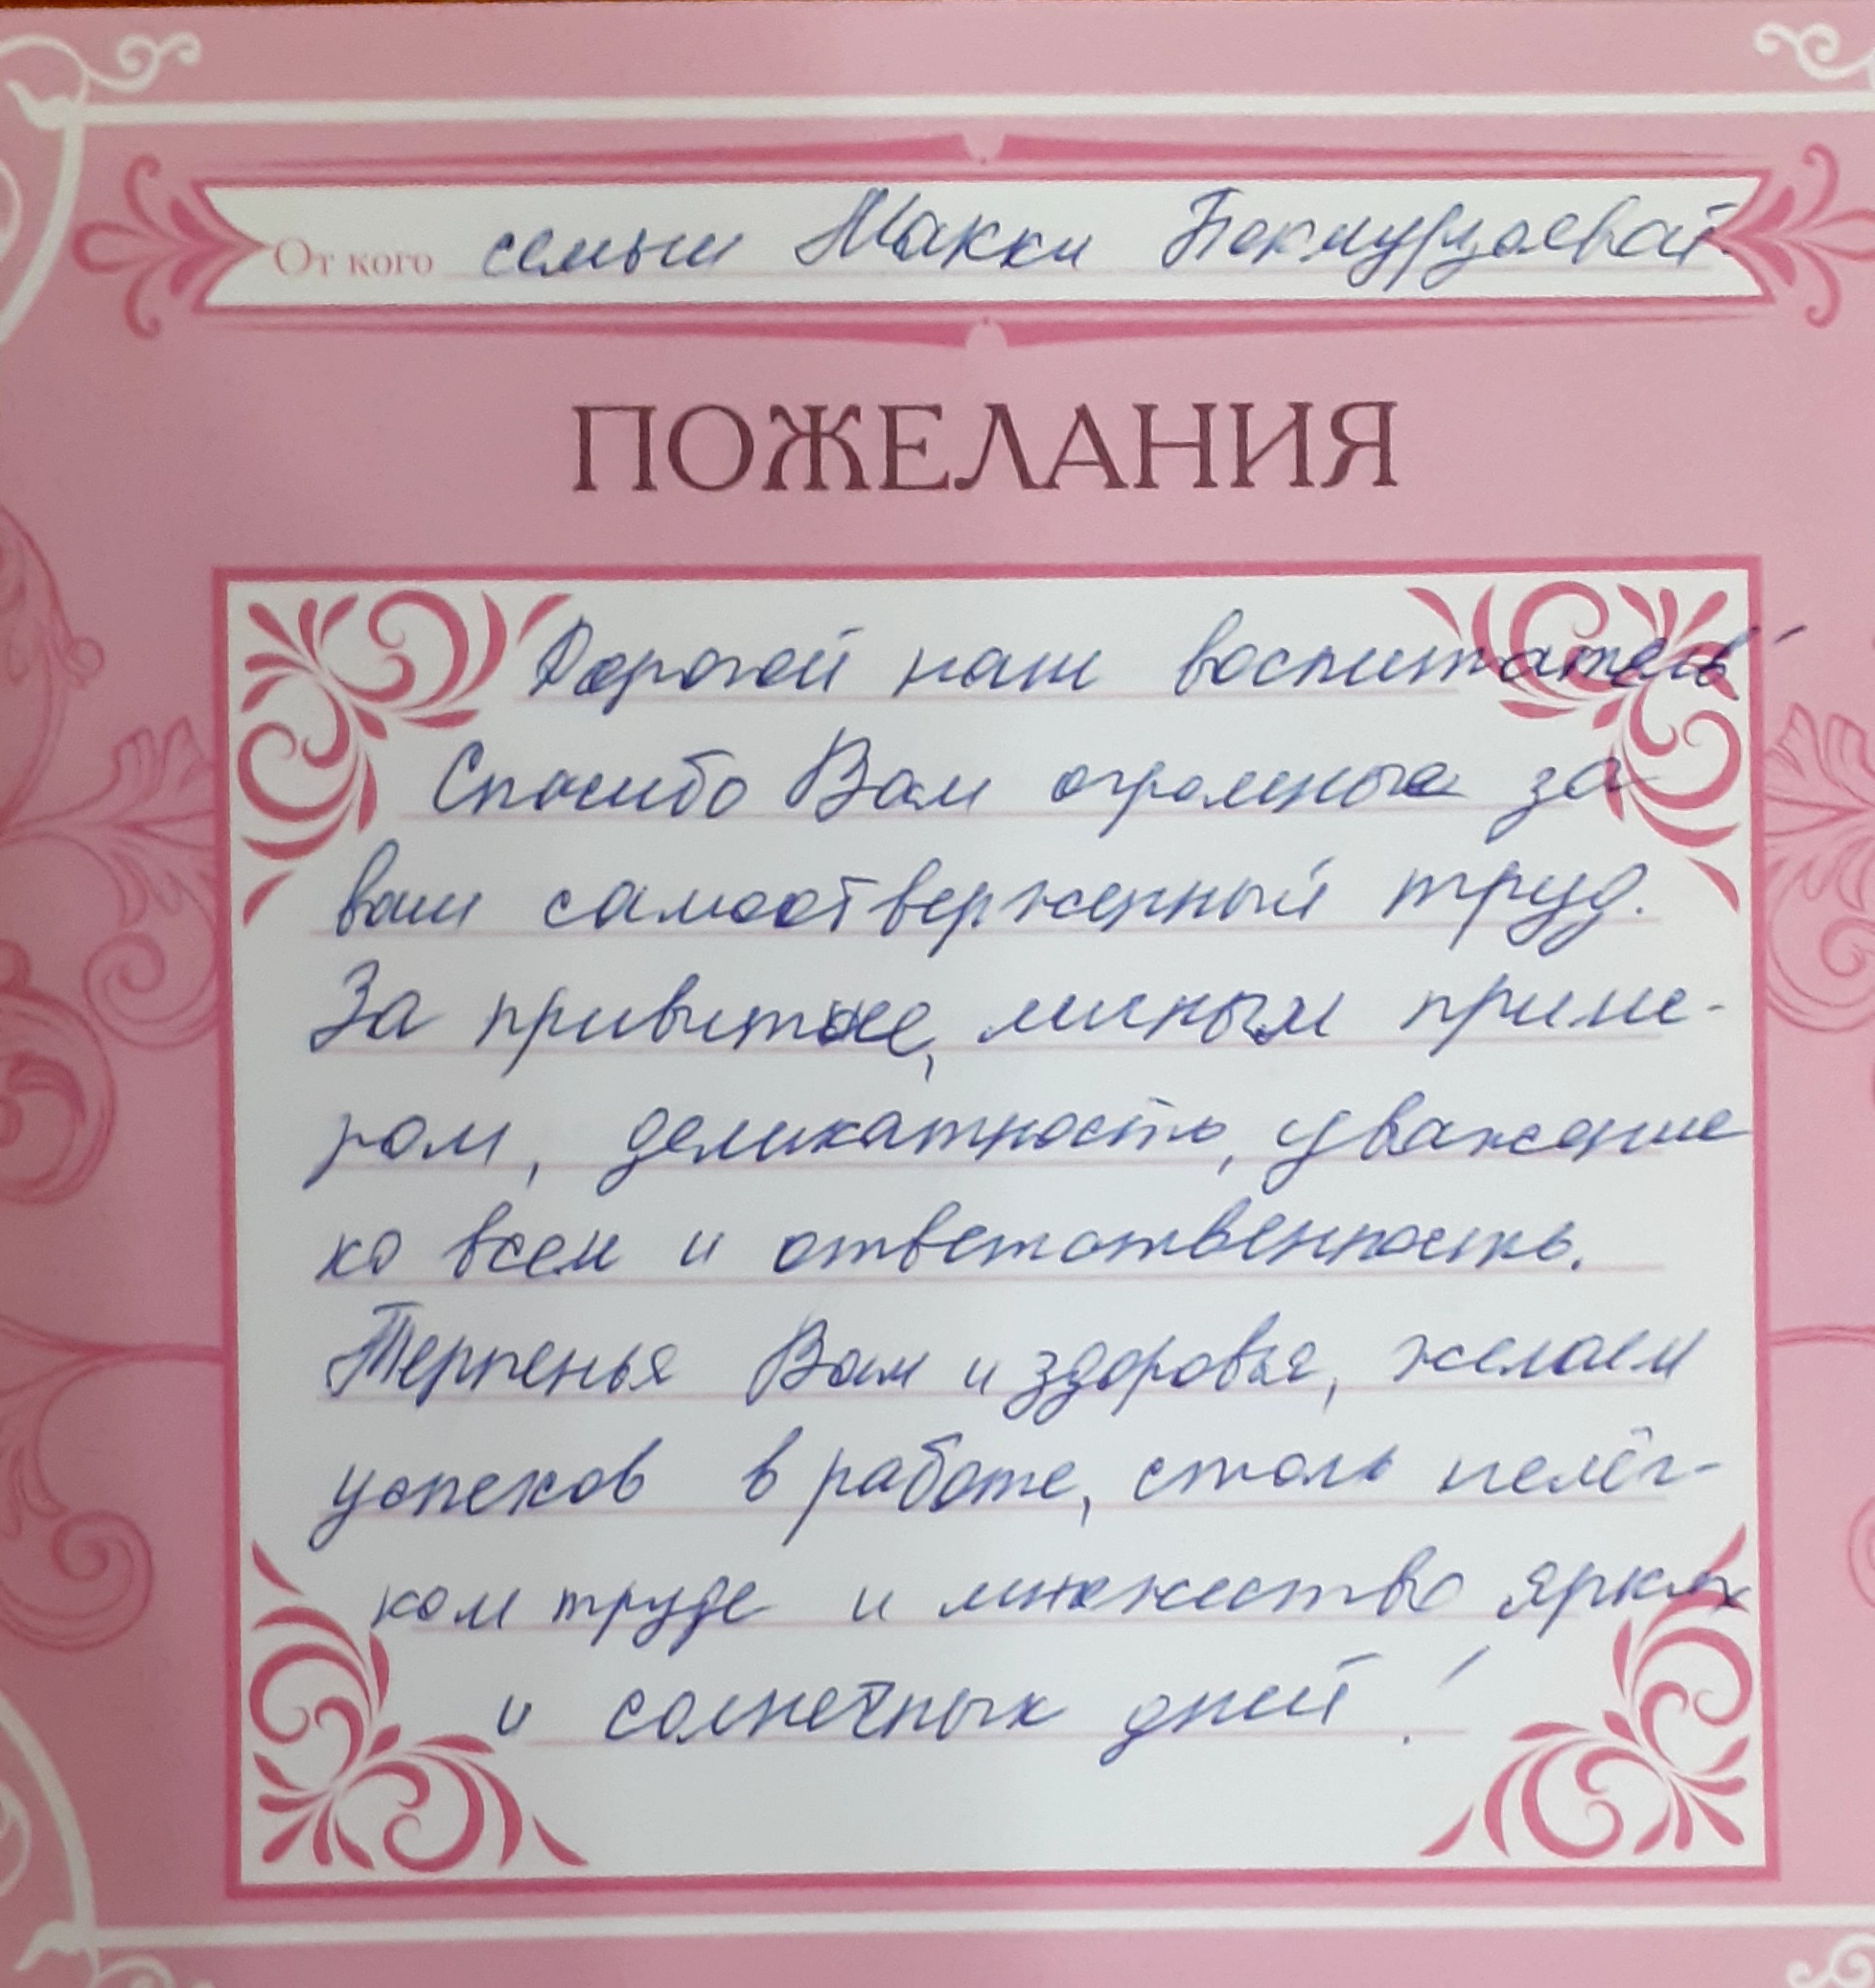 От кого семьи Макки Бекмурзаевой.
ПОЖЕЛАНИЯ
Дорогой наш воспитатель!
Спасибо Вам огромное за
ваш самоотверженный труд.
За привитые, личным приме-
ром, деликатность, уважение
ко всем и ответственность.
Терпенья Вам и здоровья, желаем
успехов в работе, столь нелёг-
ком труде и множество ярких
и солнечных дней!